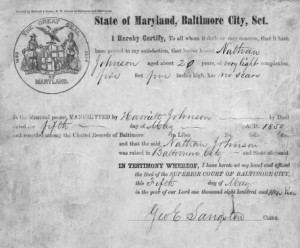 THE GREAT
MARYLAND.
State of Maryland, Baltimore City, Sct.
I Hereby Certify, To all whom it doth or may concern, that it hath
been proved to my satisfaction, that bearer hereof Nathan
Johnson aged about 20 years, of complexion,
five feet five inches high, has no scars
is the identical person MANUMITTED by Harriett Johnson by Deed
dated fifth day of May A. D. 1850
and recorded among the Chattel Records of Baltimore
and the said Nathan Johnson
was raised in Baltimore City and State aforesaid.
IN TESTIMONY WHEREOF, I have hereto set my hand and affixed
the Seal of the SUPERIOR COURT OF BALTIMORE CITY,
this Fifth day of May
in the year of our Lord one thousand eight hundred and
Geo E Sangston CLERK.